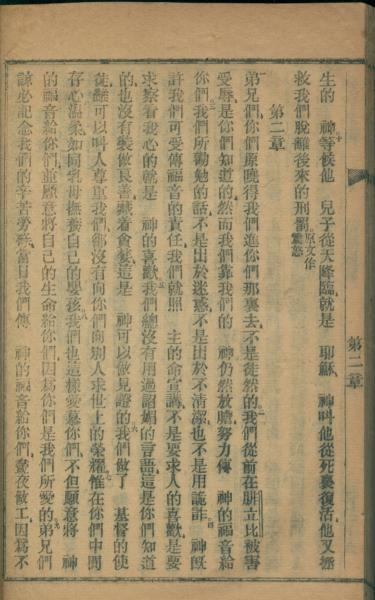 生的　神十等候他　兒子從天降臨就是　耶穌　神叫他從死裏復活他又拯
救我們脫離後來的刑罰原文作震怒
第二章
第弟兄們你們原曉得我們進你們那裏去不是徒然的二我們從前在腓立比被害
受辱是你們知道的然而我們靠我們的　神仍然放膽努力傳　神的福音給
你們三我們所勸勉的話不是出於迷惑不是出於不清潔也不是用詭詐四　神既
許我們可受傳福音的責任我們就照　主的命宣講不是要求人的喜歡是要
求察看我心的就是　神的喜歡五我們總沒有用過諂媚的言語這是你們知道
的也沒有裝做良善藏着貪婪這是　神可以做見證的六我們做了　基督的使
徒雖可以叫人尊重我們卻沒有向你們向別人求世上的榮耀七惟在你們中間
存心溫柔如同乳母撫養自己的嬰孩八我們也這樣愛慕你們不但願意將　神
的福音給你們並願意將自己的生命給你們因爲你們是我們所愛的九弟兄們
諒必記念我們的辛苦勞碌當日我們傳　神的福音給你們晝夜做工因爲不
第二章